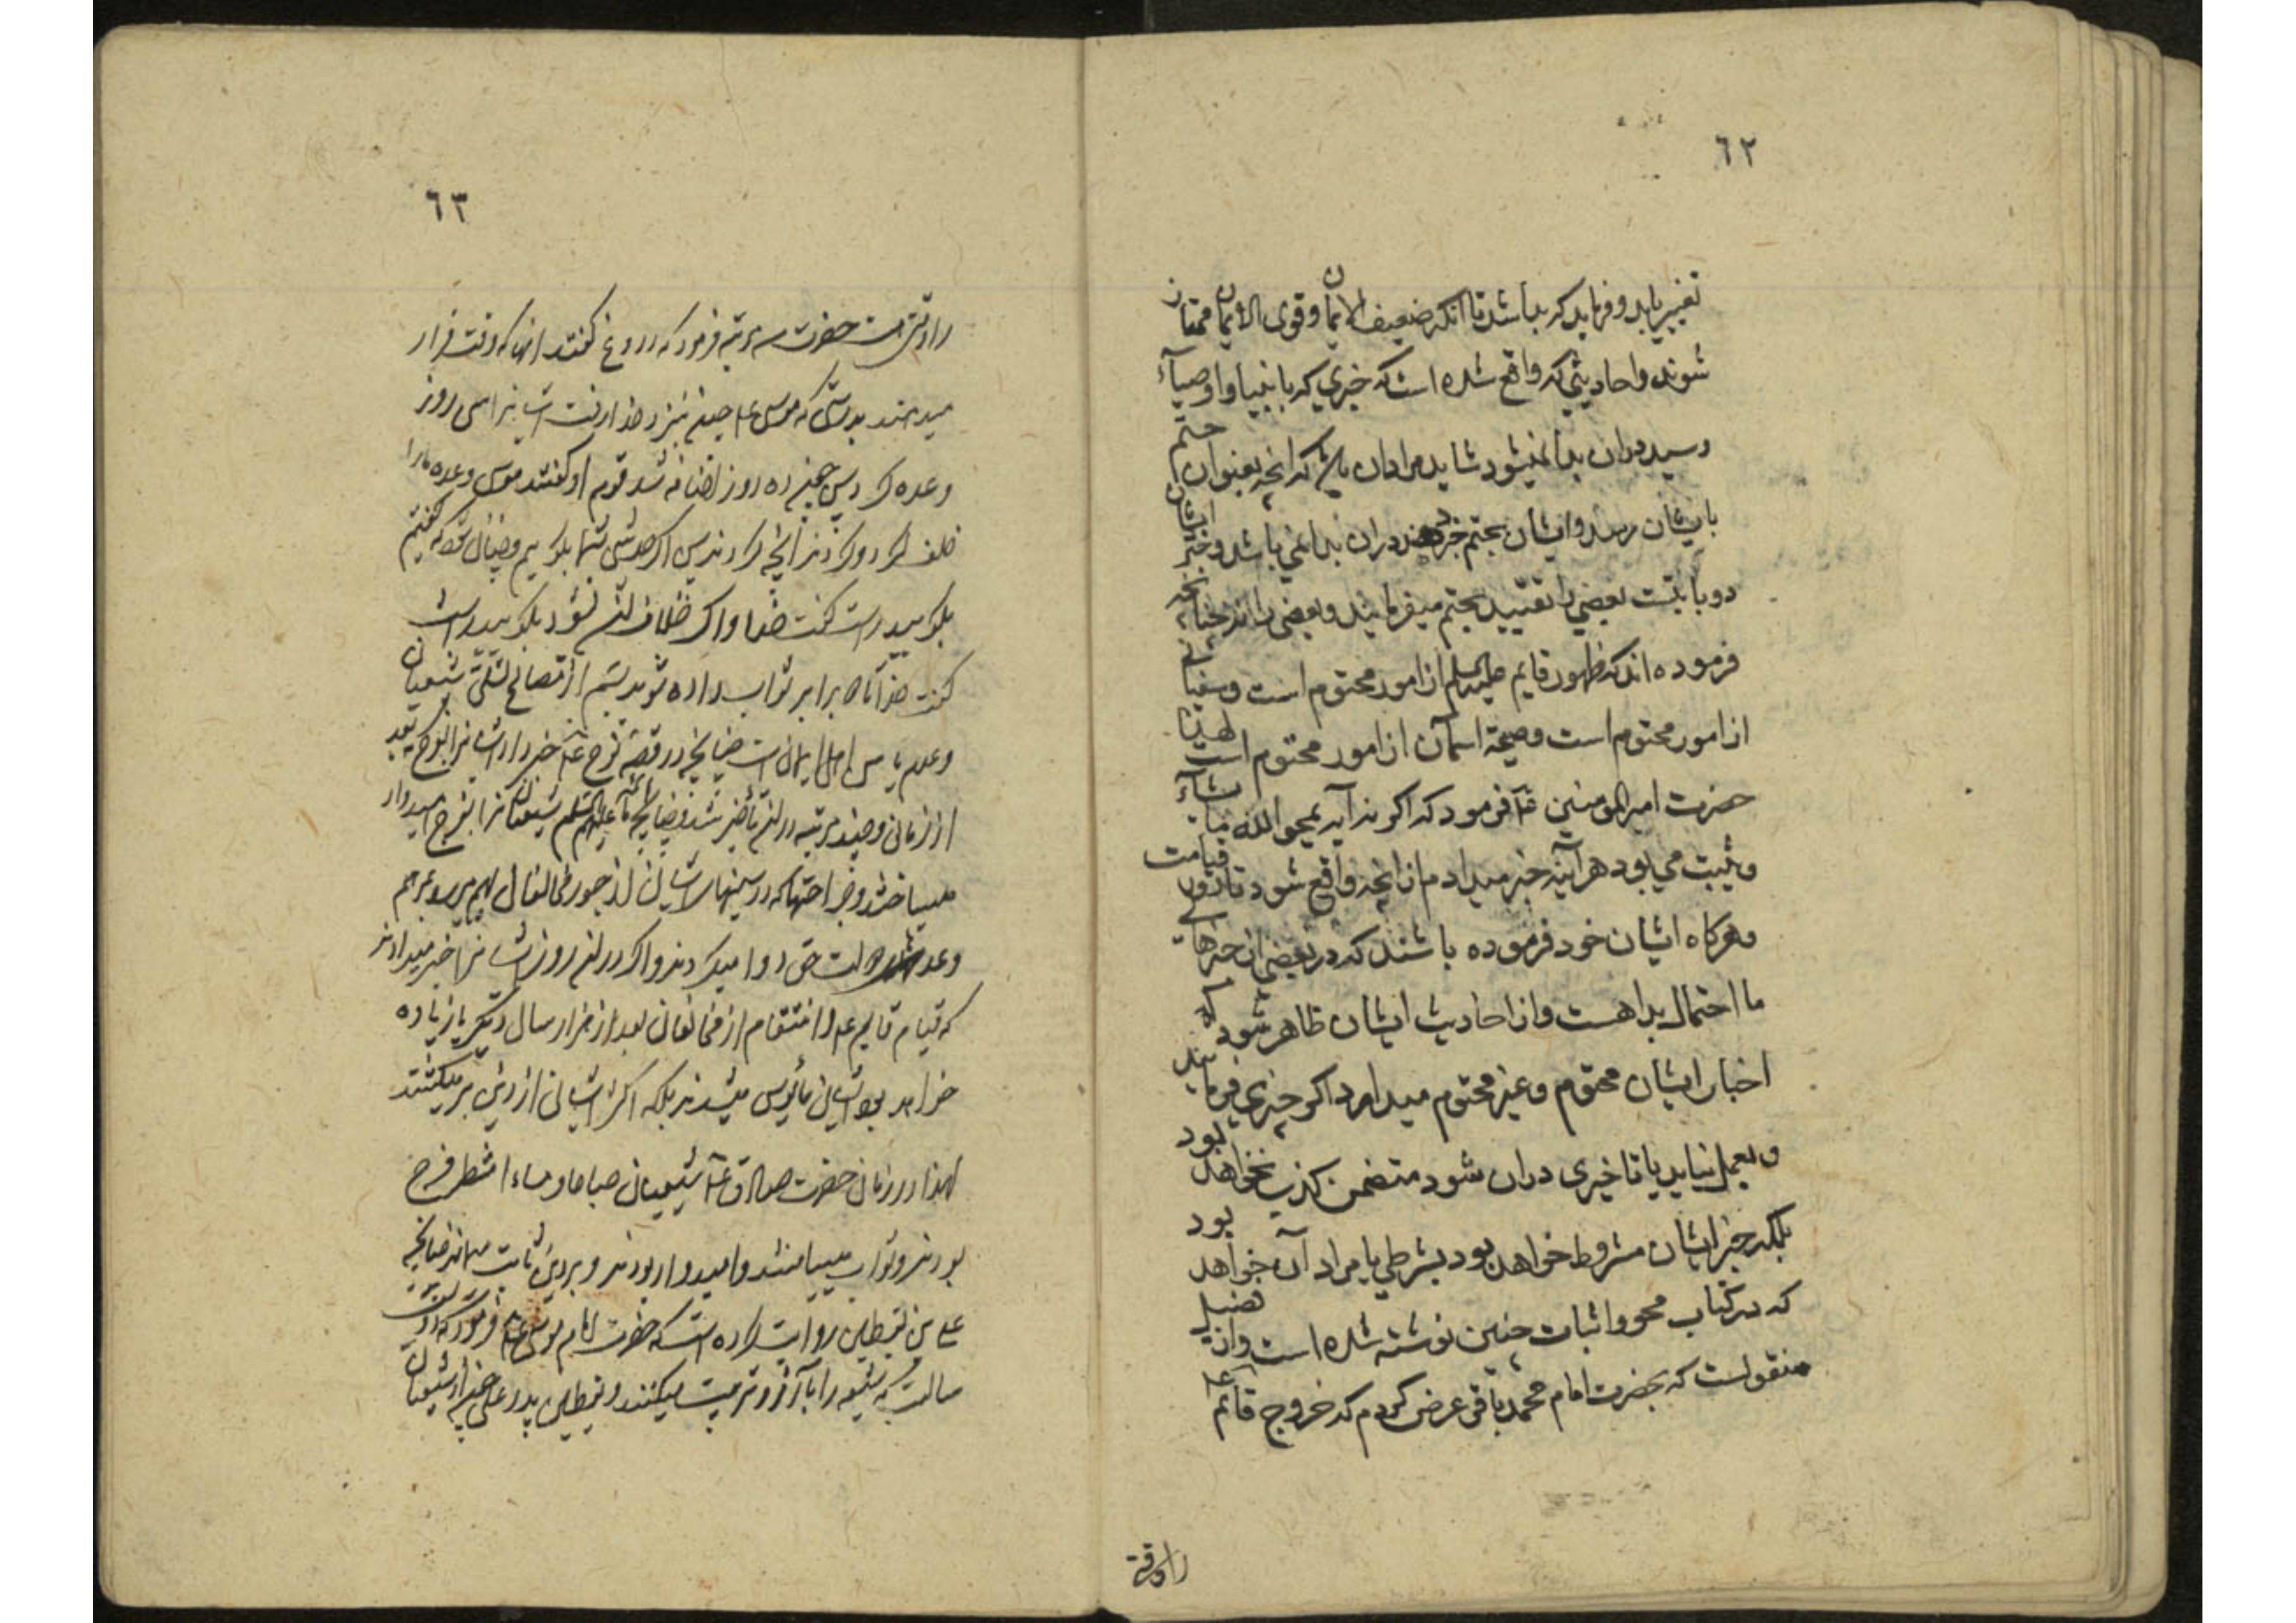 ٦٢
تغییر یابد و فرماید که بدا شد تا آنکه ضعیف الایمان و قوی الایمان ممتاز
شوند و احادیثی که واقع شده است که خبری که بانبیا و اوصیآء
رسید دران بدا نمیشود شاید مراد ان باشد که انچه بعنوان حتم
بایشان رسد و ایشان بحتم خبر دهند دران بدا نمی باشد و خبر ایشان
دو بابتست بعضی را تقیید بحتم میفرمایند و بعضی را نه چنانچه
فرموده اند که ظهور قایم علیه السلم از امور محتوم است و سفیانی
از امور محتوم است و صیحۀ اسمان از امور محتوم است لهذا
حضرت امیر المومنین ع۴ فرمود که اکر نه آیه یمحو الله ما یشآء
و یثبت می بود هرآینه خبر میدادم از انچه واقع شود تا روز قیامت
و هرکاه ایشان خود فرموده باشند که در بعضی از خبرهای
ما احتمال بدا هست و از احادیث ایشان ظاهر شود که
اخبار ایشان محتوم و غیر محتوم میدارد اکر خبری فرمایند
و بعمل نیاید یا تاخیری دران شود متضمن کذب نخواهد بود
بلکه خبر ایشان مشروط خواهد بود بشرطی یا مراد آن خواهد بود
که در کتاب محو و اثبات چنین نوشته شده است و از فضیل
منقولست که بحضرت امام محمد باقر عرض کردم که خروج قائم ع۴
را وقتی
٦٣
را وقتی هست حضرت سه مرتبه فرمود که دروغ کفتند انها که وقت قرار
میدهند بدرستی که موسی ع۴ چون بنزد خدا رفت ایشانرا سی روز
وعده کرد پس چون ده روز اضافه شد قوم او کفتند موسی وعده ما را
خلف کرد و کردند آنچه کردند پس اکر حدیثی بشما بکوییم و چنان شود که کفتیم
بکویید راست کفت خدا و اکر خلاف ان شود بکویید راست
کفت خدا تا دو برابر ثواب داده شوید و از مصالح تسلی شیعیان
و عدم یاس اهل ایمان است چنانچه در قصۀ نوح ع۴ خبر داد ایشانرا بفرج بعد
از زمانی و چند مرتبه در ان تأخیر شد و چنانچه ائمه علیهم السلم شیعیان را بفرج امیدوار
میساختند و جراحتها که در سینهای ایشان از جور مخالفان بهم میرسید بمرهم
وعده دولت حق دوا میکردند و اکر در ان روز ایشانرا خبر میدادند
که قیام قایم ع۴ و انتقام از مخالفان بعد از هزار سال دیکر یا زیاده
خواهد بود ایشان مأیوس میشدند بلکه اکثر ایشان از دین برمیکشتند
لهذا در زمان حضرت صادق ع۴ شیعیان صباحا و مساء انتظار فرج
بودند و ثواب مییافتند و امیدوار بودند و بر دین ثابت میماندند چنانچه
علی بن یقطین روایت کرده است که حضرت امام موسی ع۴ فرمود که دویست
سالست که شیعه را بآرزو تربیت میکنند و یقطین پدر علی چون از شیعیان